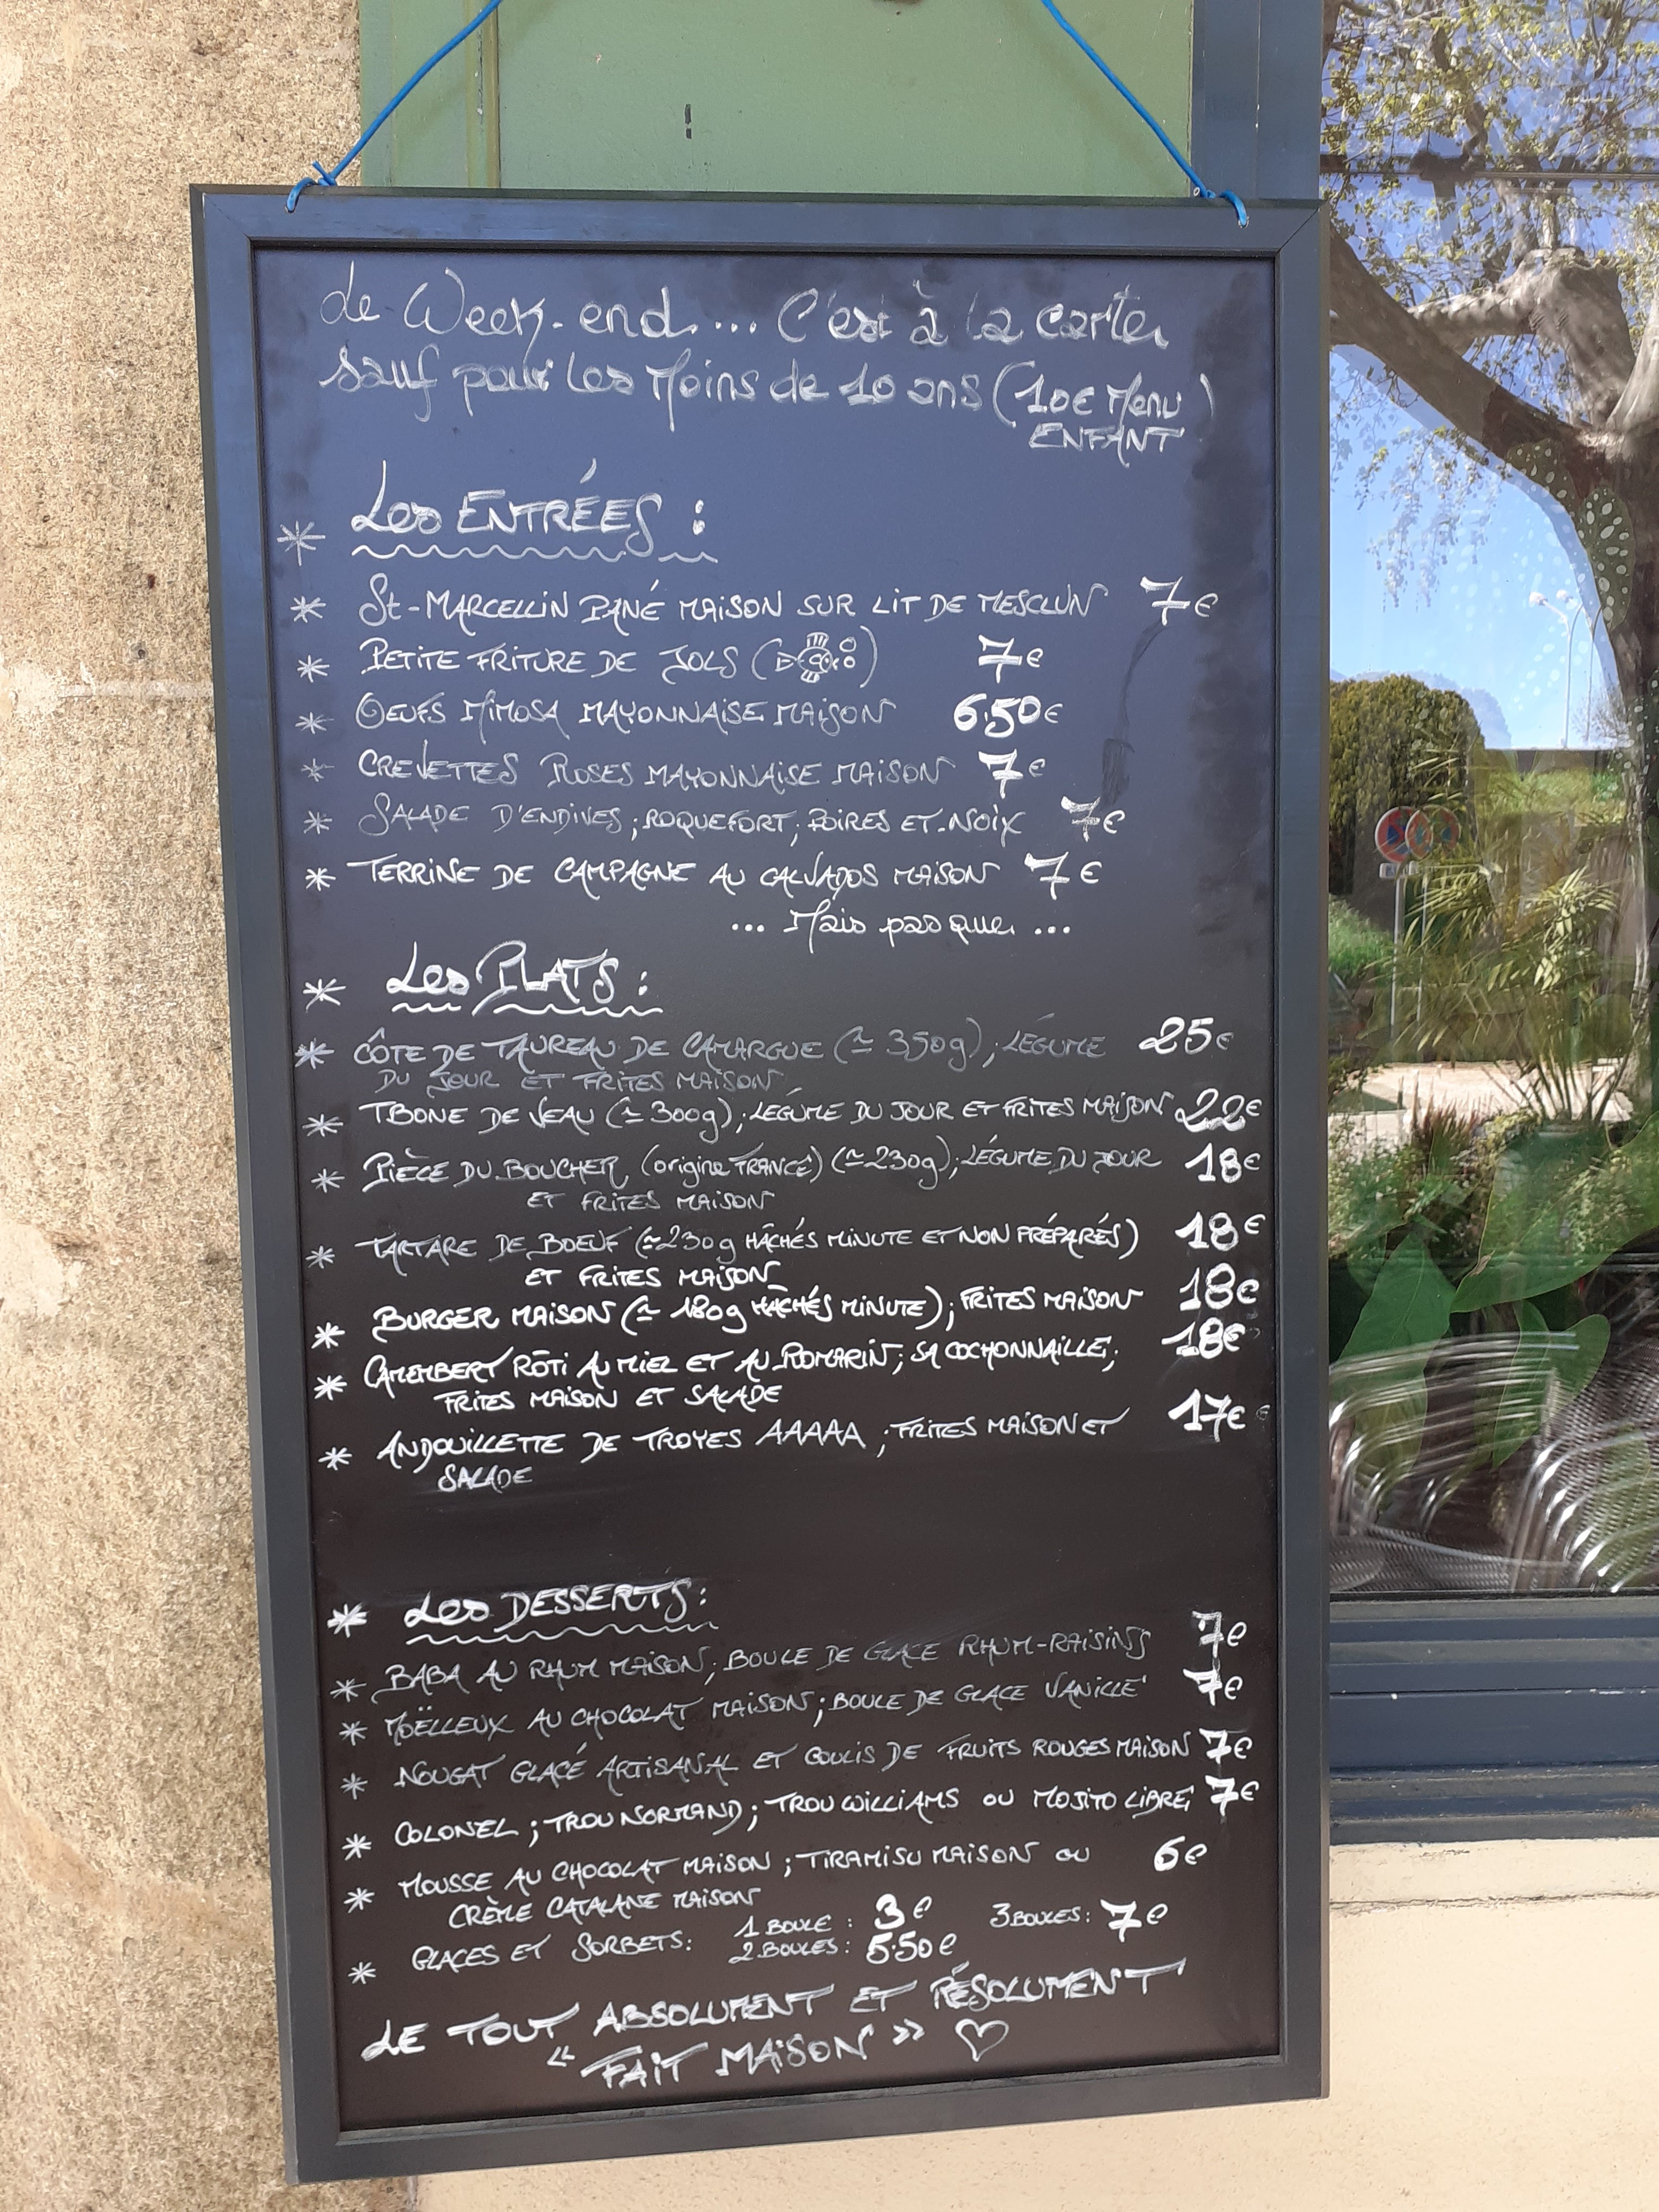 Le Week-end... C'est à la carte
sauf pour les Moins de 10 ans (10€ Menu
ENFANT)
* Les ENTRÉES :
* St-MARCELLIN PANÉ MAISON SUR LIT DE MESCLUN 7€
* PETITE FRITURE DE JOLS ( ) 7€
* OEUFS MIMOSA MAYONNAISE MAISON 6.50€
* CREVETTES ROSES MAYONNAISE MAISON 7€
* SALADE D'ENDIVES ; ROQUEFORT ; POIRES ET NOIX 7€
* TERRINE DE CAMPAGNE AU CALVADOS MAISON 7€
... Mais pas que ...
* Les PLATS :
* CÔTE DE TAUREAU DE CAMARGUE (≃ 350g) ; LÉGUME 25€
DU JOUR ET FRITES MAISON
* TBONE DE VEAU (≃ 300g) ; LÉGUME DU JOUR ET FRITES MAISON 22€
* PIÈCE DU BOUCHER (origine FRANCE) (≃ 230g) ; LÉGUME DU JOUR 18€
ET FRITES MAISON
* TARTARE DE BOEUF (≃ 230g HÂCHÉS MINUTE ET NON PRÉPARÉS) 18€
ET FRITES MAISON
* BURGER MAISON (≃ 180g HÂCHÉS MINUTE) ; FRITES MAISON 18€
* CAMEMBERT RÔTI AU MIEL ET AU ROMARIN ; SA COCHONNAILLE ; 18€
FRITES MAISON ET SALADE
* ANDOUILLETTE DE TROYES AAAAA ; FRITES MAISON ET 17€
SALADE
* Les DESSERTS :
* BABA AU RHUM MAISON ; BOULE DE GLACE RHUM-RAISINS 7€
* MOËLLEUX AU CHOCOLAT MAISON ; BOULE DE GLACE VANILLE 7€
* NOUGAT GLACÉ ARTISANAL ET COULIS DE FRUITS ROUGES MAISON 7€
* COLONEL ; TROU NORMAND ; TROU WILLIAMS OU MOJITO LIBRE 7€
* MOUSSE AU CHOCOLAT MAISON ; TIRAMISU MAISON OU 6€
CRÈME CATALANE MAISON
* GLACES ET SORBETS : 1 BOULE : 3€ 3 BOULES : 7€
2 BOULES : 5.50€
LE TOUT ABSOLUMENT ET RÉSOLUMENT
« FAIT MAISON » ♡